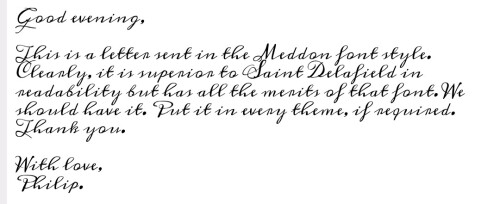 Good evening,
This is a letter sent in the Meddon font style.
Clearly, it is superior to Saint Delafield in
readability but has all the merits of that font. We
should have it. Put it in every theme, if required.
Thank you.
With love,
Philip.